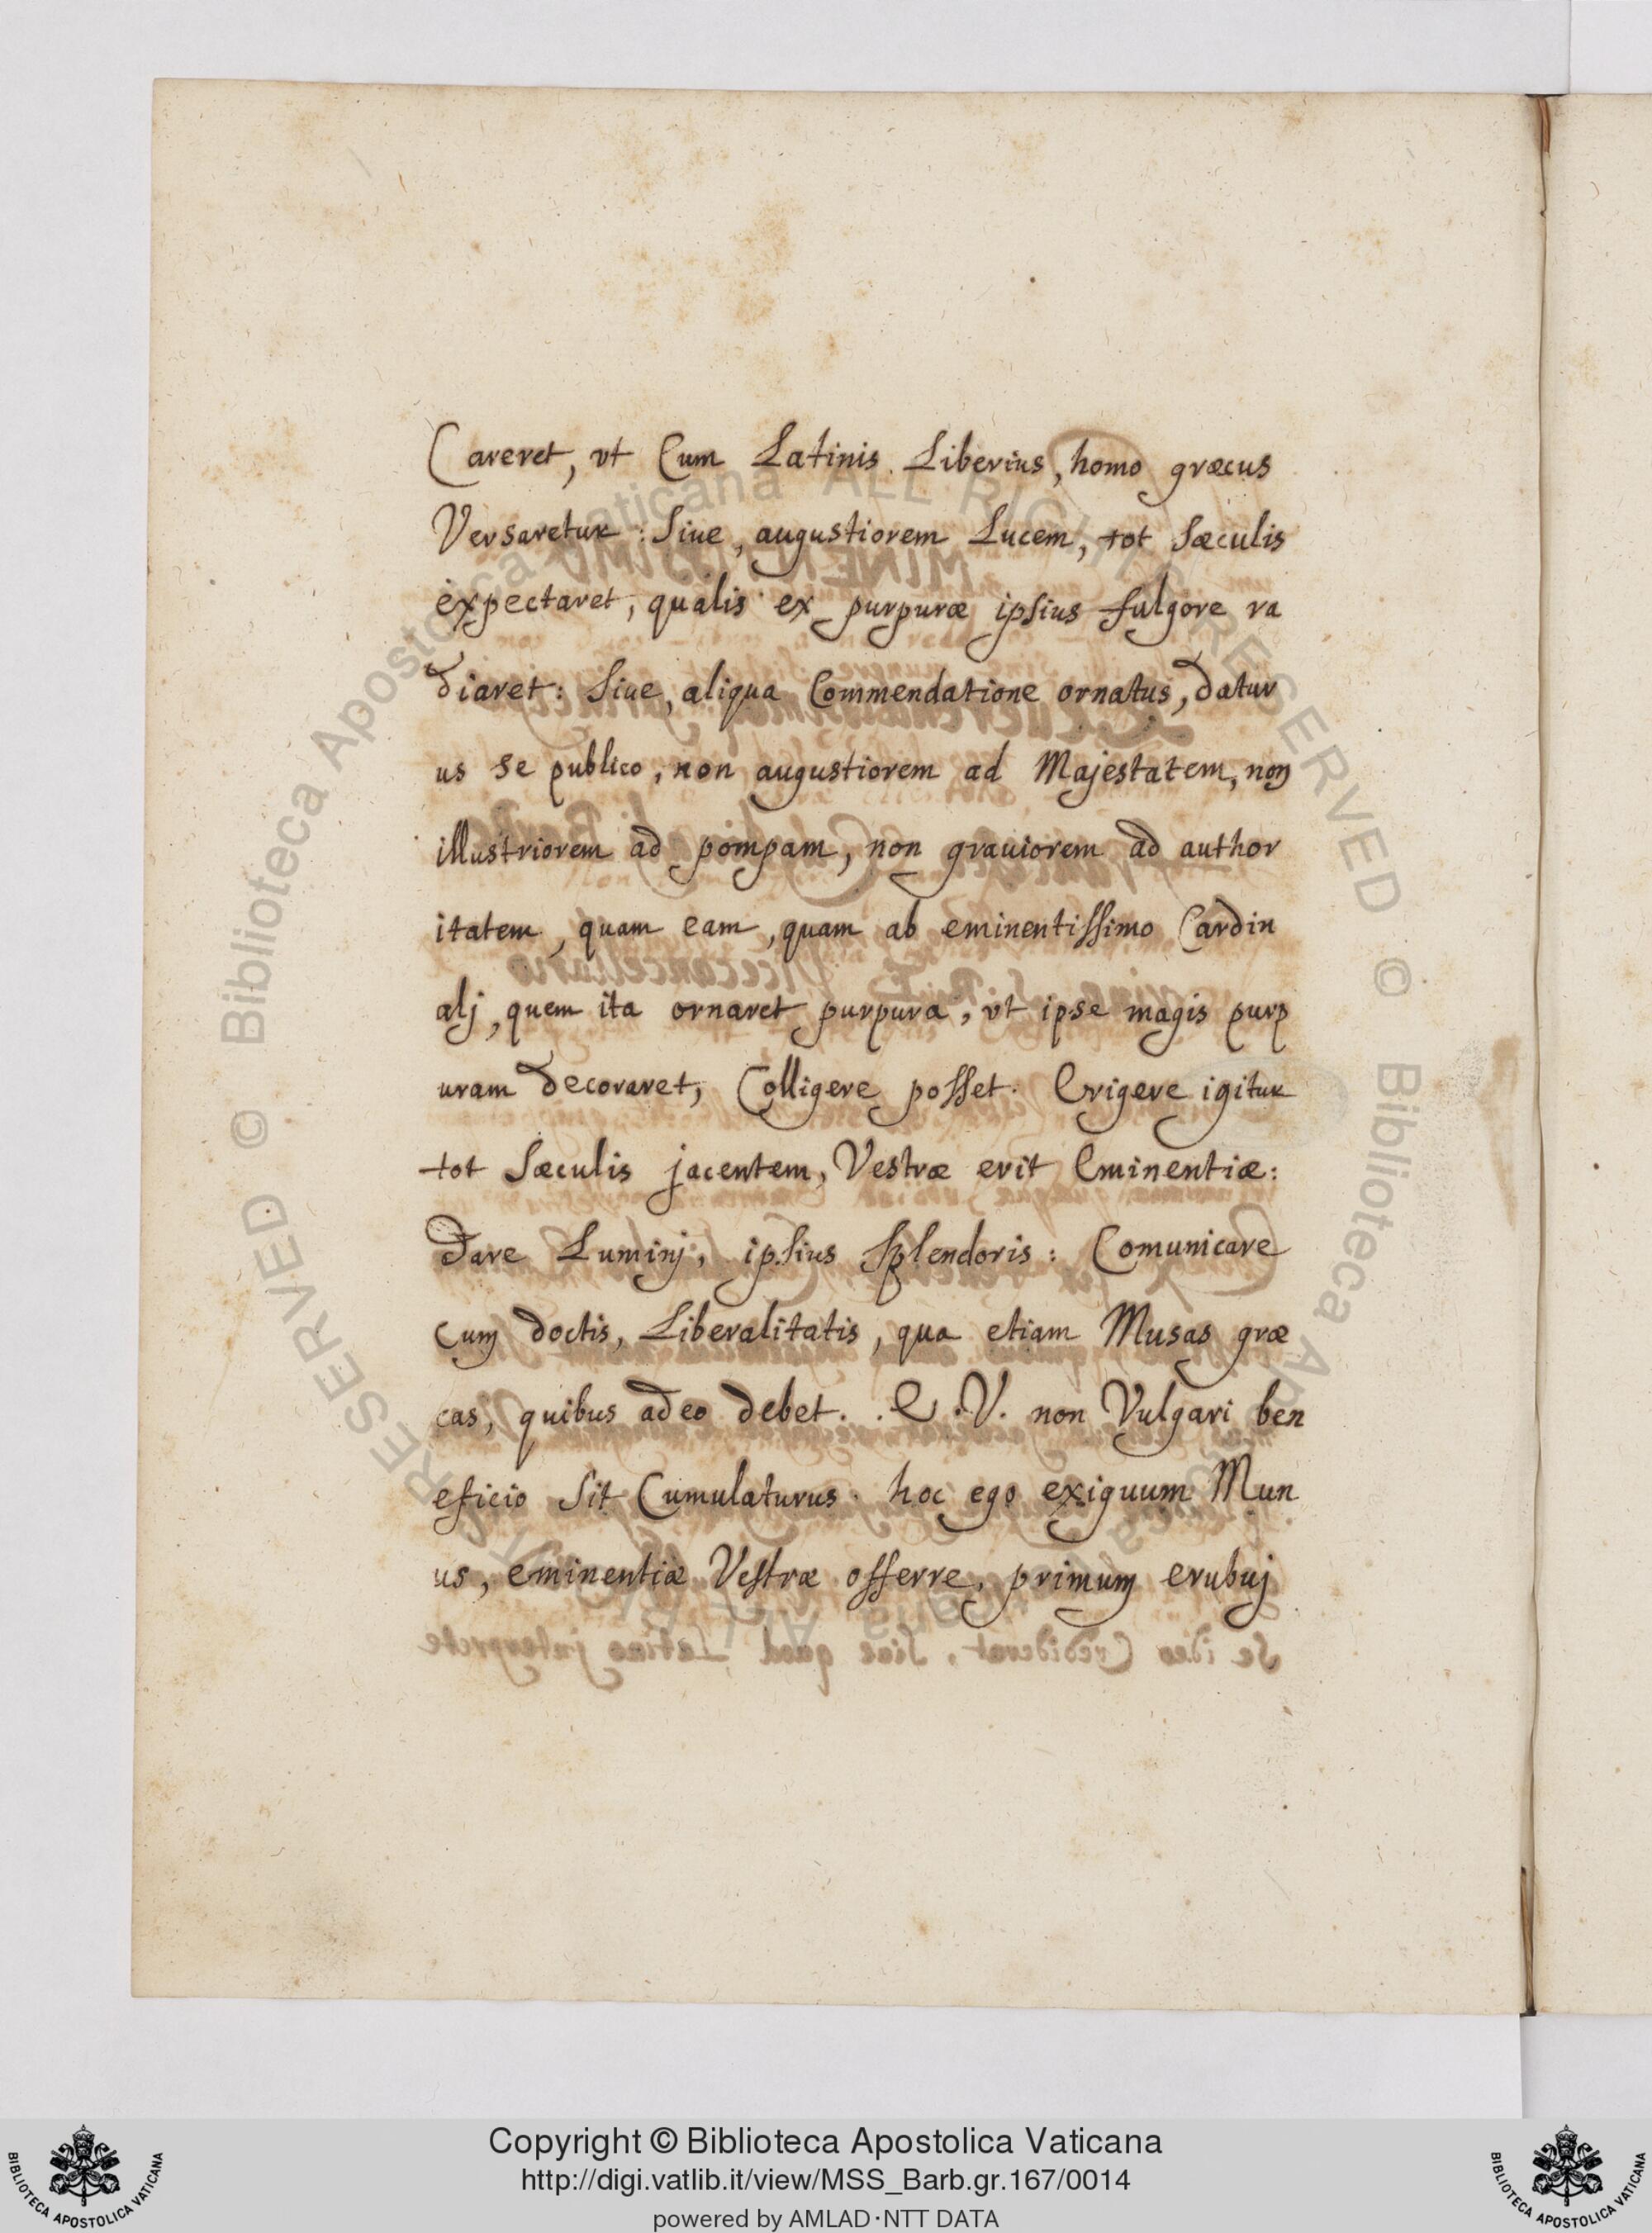 Careret, vt Cum Latinis Liberius, homo græcus
Versaretur: Siue, augustiorem Lucem, tot Sæculis
expectaret, qualis ex purpuræ ipsius fulgore ra
diaret: Siue, aliqua Commendatione ornatus, datur
us se publico, non augustiorem ad Majestatem, non
illustriorem ad pompam, non grauiorem ad author
itatem, quam eam, quam ab eminentissimo Cardin
alj, quem ita ornaret purpura, vt ipse magis purp
uram decoraret, Colligere posset. Erigere igitur
tot Sæculis jacentem, Vestræ erit Eminentiæ:
Dare Luminj, ipsius Splendoris: Comunicare
Cum doctis, Liberalitatis, qua etiam Musas græ
cas, quibus adeo debet. E.V. non Vulgari ben
eficio Sit Cumulaturus. hoc ego exiguum Mun
us, eminentiæ Vestræ offerre, primum erubuj
© Biblioteca Apostolica Vaticana ALL RIGHTS RESERVED
Copyright © Biblioteca Apostolica Vaticana
http://digi.vatlib.it/view/MSS_Barb.gr.167/0014
powered by AMLAD·NTT DATA
BIBLIOTECA APOSTOLICA VATICANA
BIBLIOTECA APOSTOLICA VATICANA